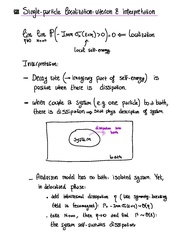 Single-particle localization criterion & interpretation
lim lim P(-Im σᵢ(E+iη)>0)=0 ⇐ localization
η→0 N→∞
local self-energy
Interpretation:
- Decay rate (~ imaginary part of self-energy) is
positive when there is dissipation.
- When couple a system (e.g. one particle) to a bath,
there is dissipation
description of system
dissipation into
bath
system
bath
- Anderson model has no bath: isolated system. Yet,
in delocalized phase:
- add infinitesimal dissipation η (like symmetry breaking
field in ferromagnet).
- take N→∞, then η→0 and find
the system self-sustains dissipation